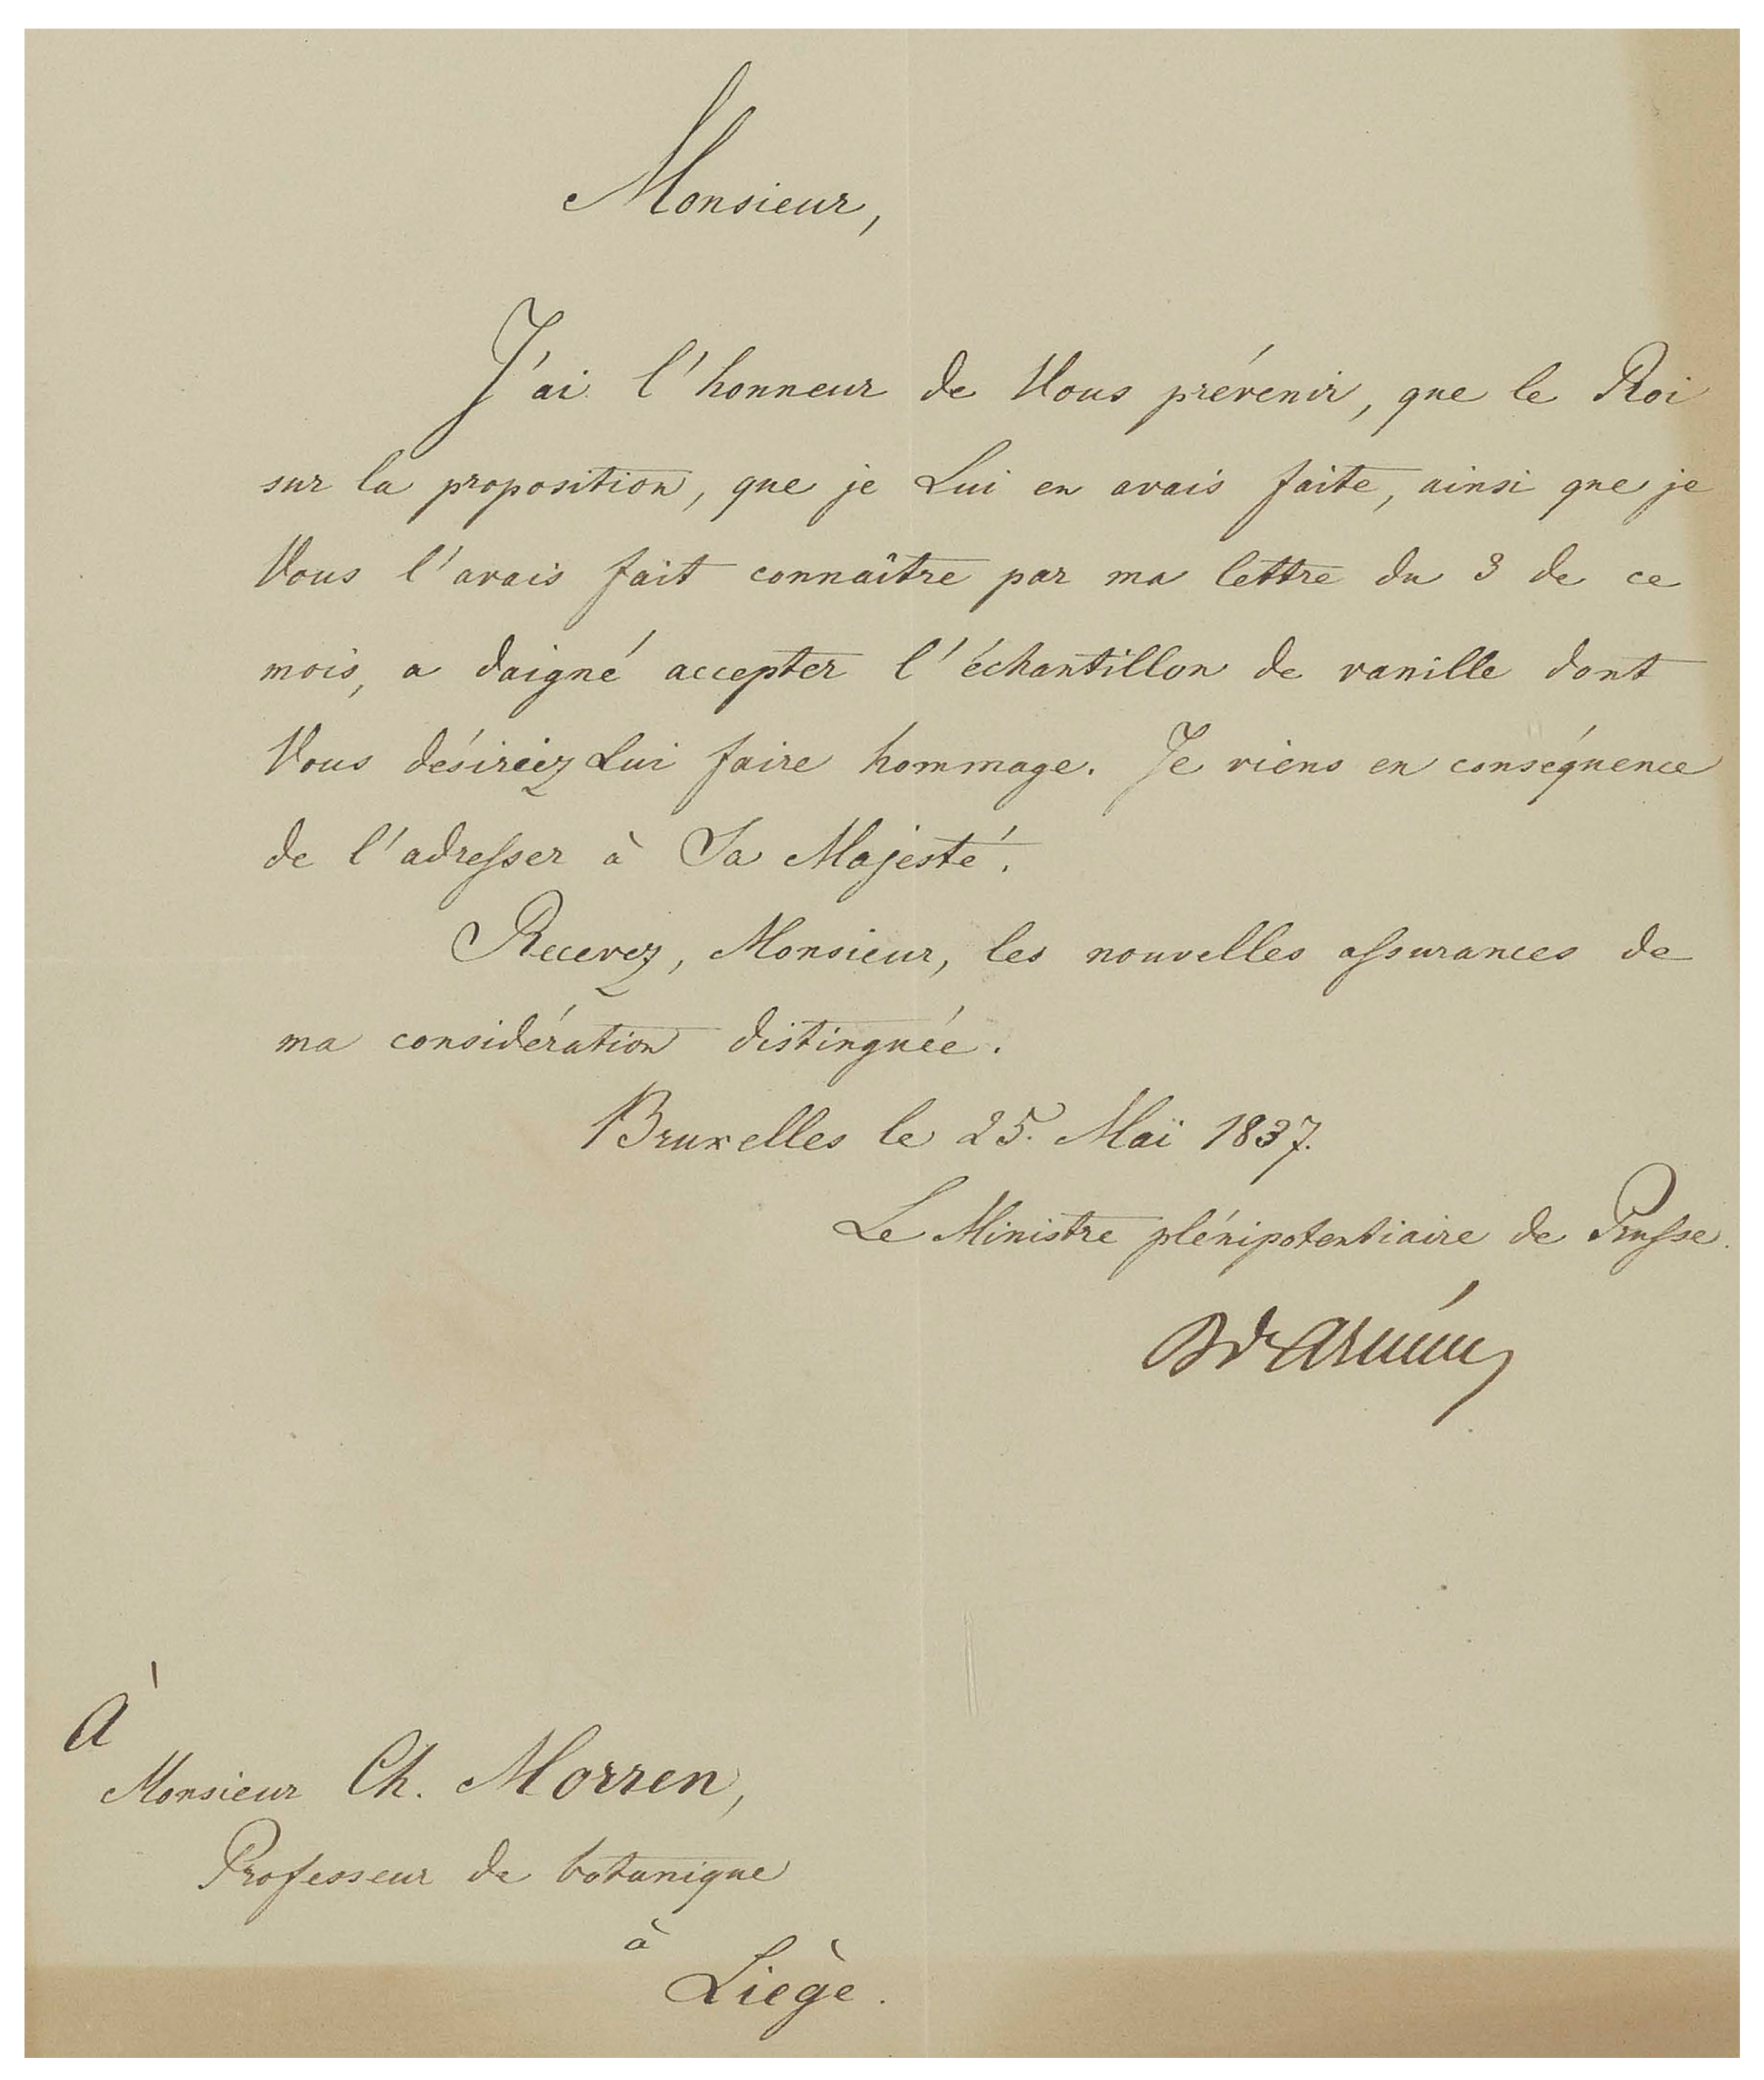 Monsieur,
J'ai l'honneur de Vous prévenir, que le Roi
sur la proposition, que je Lui en avais faite, ainsi que je
Vous l'avais fait connaître par ma lettre du 3 de ce
mois, a daigné accepter l'échantillon de vanille dont
Vous désiriez Lui faire hommage. Je viens en conséquence
de l'adresser à Sa Majesté.
Recevez, Monsieur, les nouvelles assurances de
ma considération distinguée.
Bruxelles le 25. Maï 1837.
Le Ministre plénipotentiaire de Prusse.
Arnim
À
Monsieur Ch. Morren,
Professeur de botanique
à
Liège.